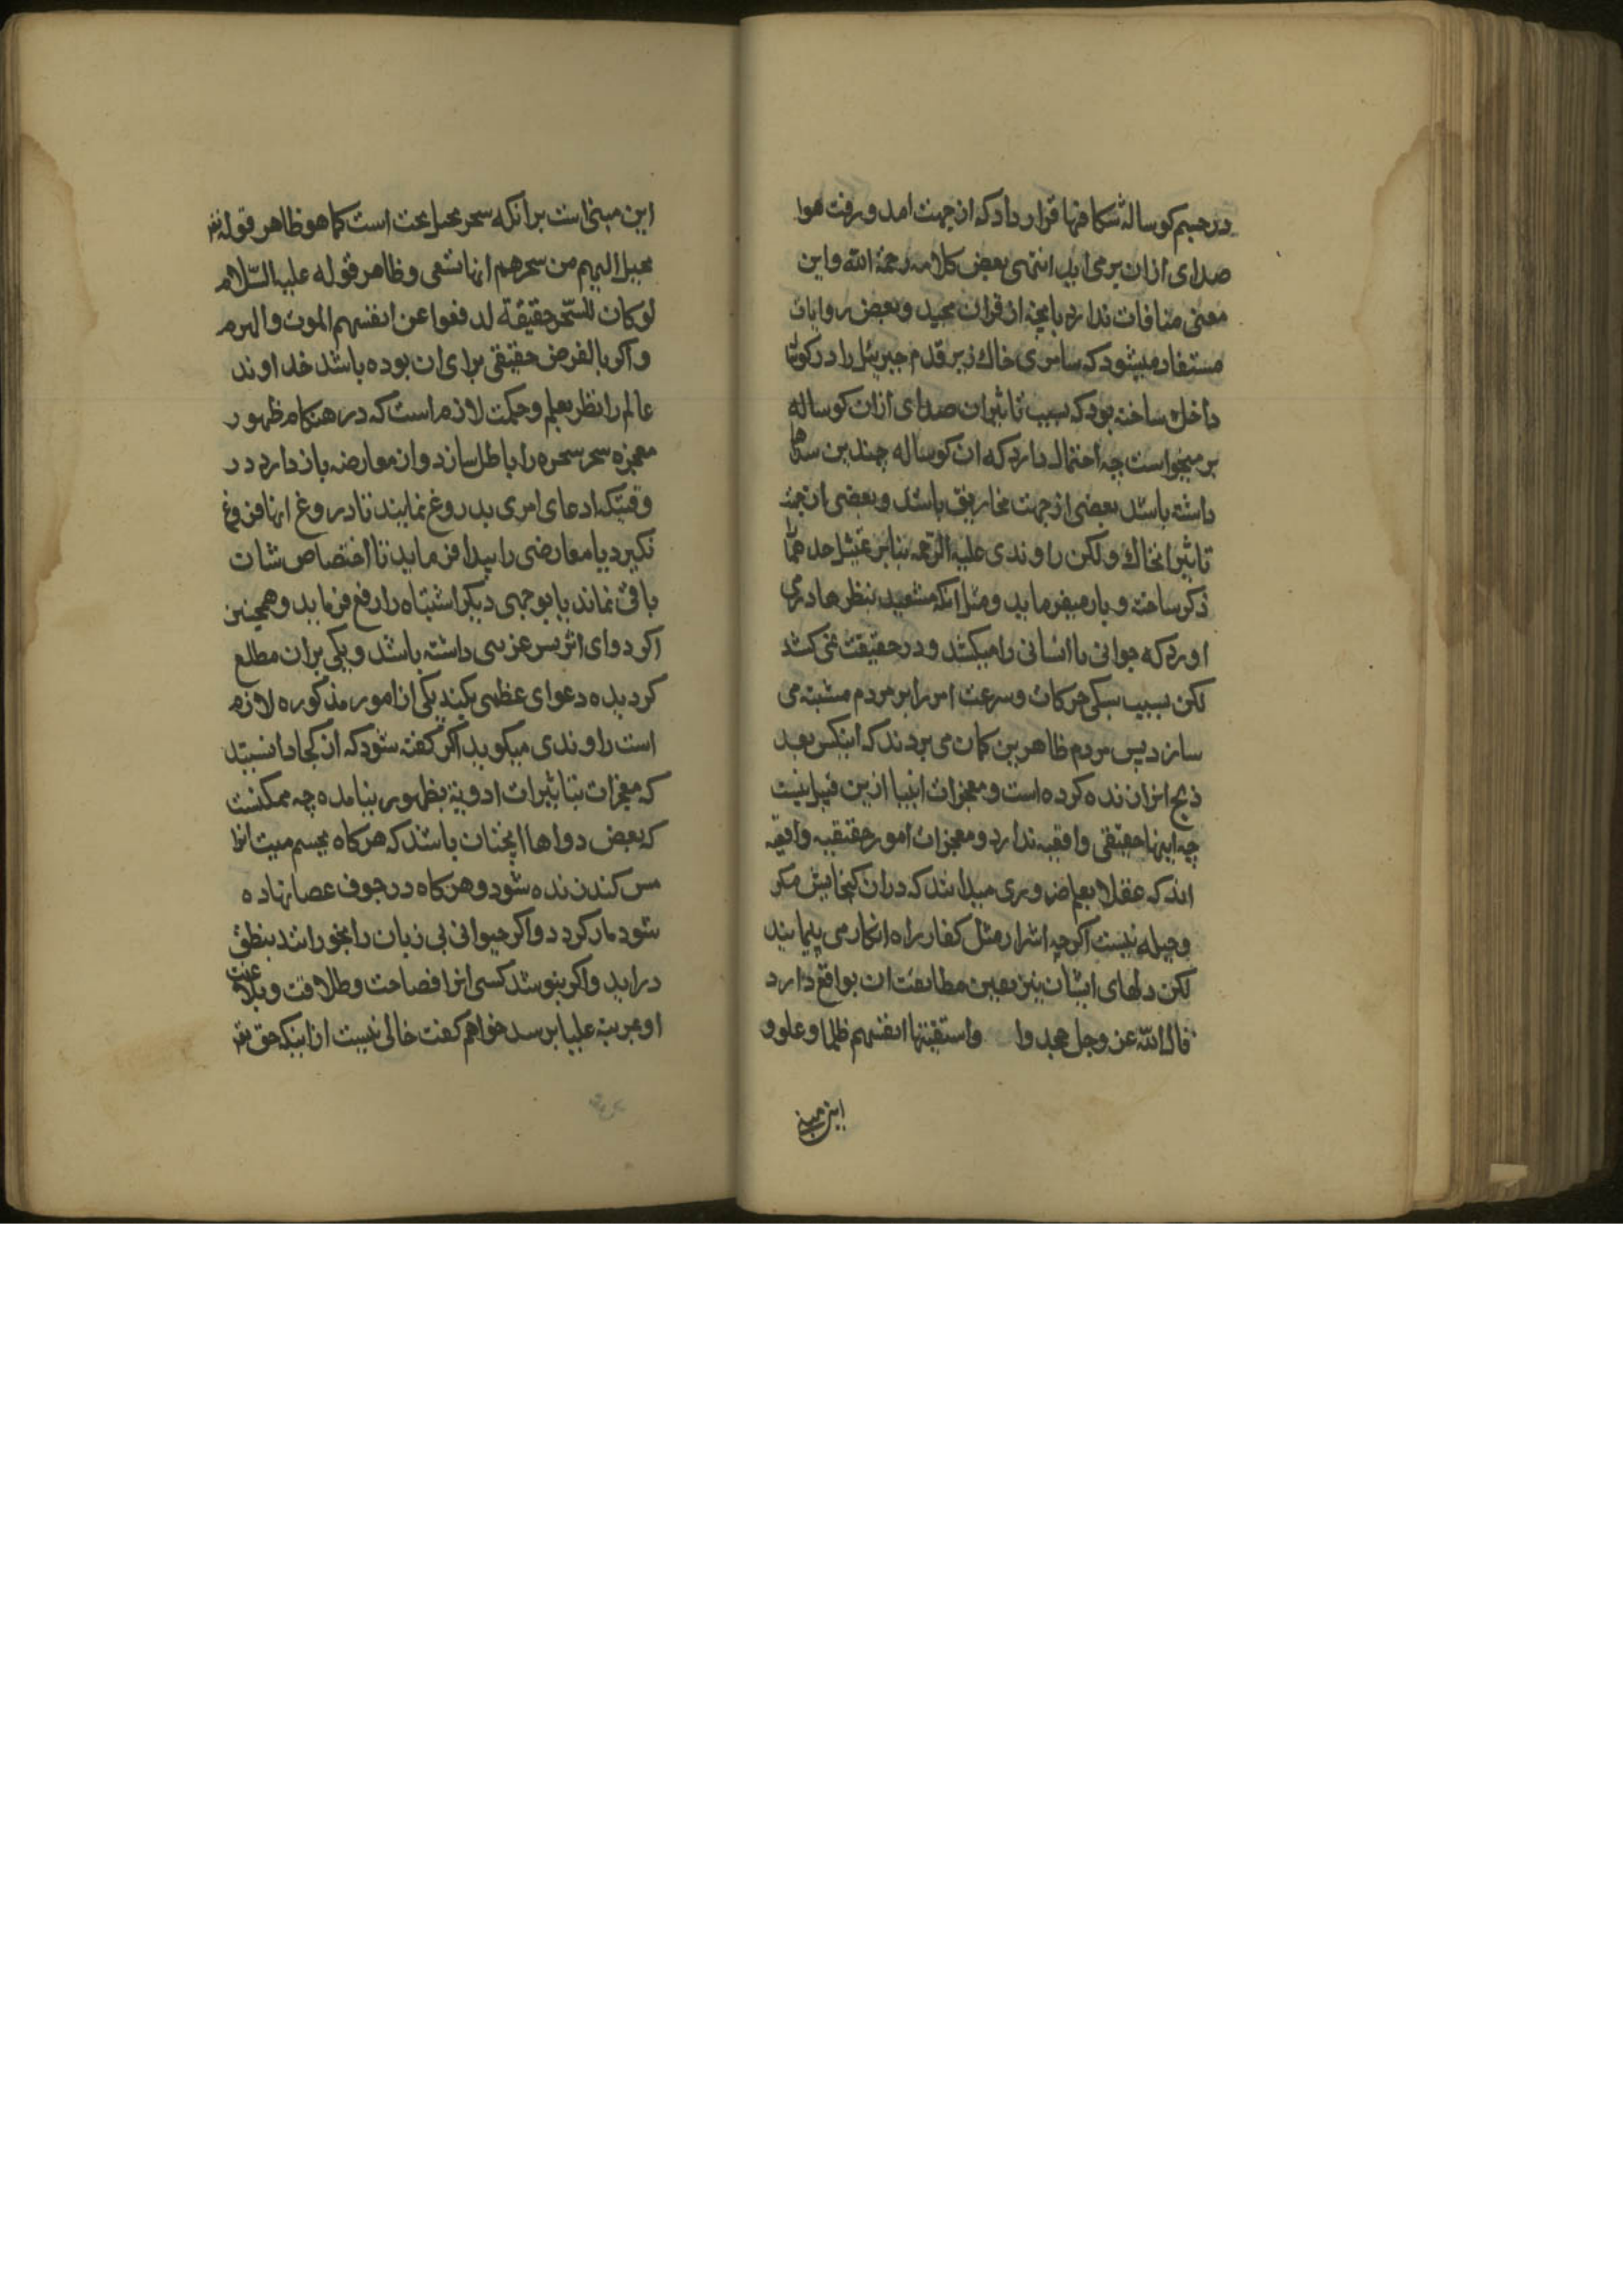 در جسم کوساله شکافها قرار داد که از جهت امد و رفت هوا
صدای ازان بر می اید انتهی بعض کلامه رحمة الله و این
معنی منافات ندارد بانچه از قران مجید و بعض روایات
مستفاد میشود که سامری خاك زیر قدم جبرئیل را در کوساله
داخل ساخته بود که بسبب تاثیر ان صدای ازان کوساله
بر میخواست چه احتمال دارد که ان کوساله چندین صداها
داشته باشد بعضی از جهت مخاریق باشد و بعضی از جهت
تاثیر انخاك و لکن راوندی علیه الرحمه بنابر تمثیل احدهما
ذکر ساخته و باز میفرماید و مثل انکه مشعبد بنظرها در می
اورد که حیوانی یا انسانی را میکشد و در حقیقت نمی کشد
لکن بسبب سبکی حرکات و سرعت امر را بر مردم مشتبه می
سازد پس مردم ظاهر بین کمان می برند که اینکس بعد
ذبح انرا زنده کرده است و معجزات انبیا ازین قبیل نیست
چه اینها حقیقتی واقعیه ندارد و معجزات امور حقیقیه واقعیه
اند که عقلا بعلم ضروری میدانند که دران کنجایش مکر
و حیله نیست اکرچه اشرار مثل کفار راه انکار می پیمایند
لکن دلهای ایشان نیز یقین مطابقت ان بواقع دارد
قال الله عز وجل جحدوا واستیقنتها انفسهم ظلما وعلوا و
این مبنی
این مبنی است بر انکه سحر تخییل بحت است کما هو ظاهر قوله تعه
یخیل الیهم من سحرهم انها تسعی و ظاهر قوله علیه السّلام
لو کان للسّحر حقیقة لدفعوا عن انفسهم الموت والهرم
و اکر بالفرض حقیقتی برای ان بوده باشد خداوند
عالم را نظر بعلم و حکمت لازم است که در هنکام ظهور
معجزه سحر سحره را باطل سازد و از معارضه باز دارد در
وقتیکه ادعای امری بدروغ نمایند تا دروغ انها فروغ
نکیرد یا معارضی را پیدا فرماید تا اختصاص شان
باقی نماند یا بوجهی دیکر اشتباه را رفع فرماید و همچنین
اکر دوای اثر بس غریبی داشته باشد و یکی بران مطلع
کردیده دعوای عظمی بکند یکی از امور مذکوره لازم
است راوندی میکوید اکر کفته شود که از کجا دانستید
که معجزات بتاثیرات ادویة بظهور نیامده چه ممکنست
که بعض دواها انچنان باشد که هرکاه بجسم میت انرا
مس کنند زنده شود و هرکاه در جوف عصا نهاده
شود مار کردد و اکر حیوانی بی زبان را بخورانند بنطق
در اید و اکر بنوشد کسی انرا فصاحت و طلاقت و بلاغت
او بمرتبه علیا برسد خواهم کفت خالی نیست از اینکه حق تعه